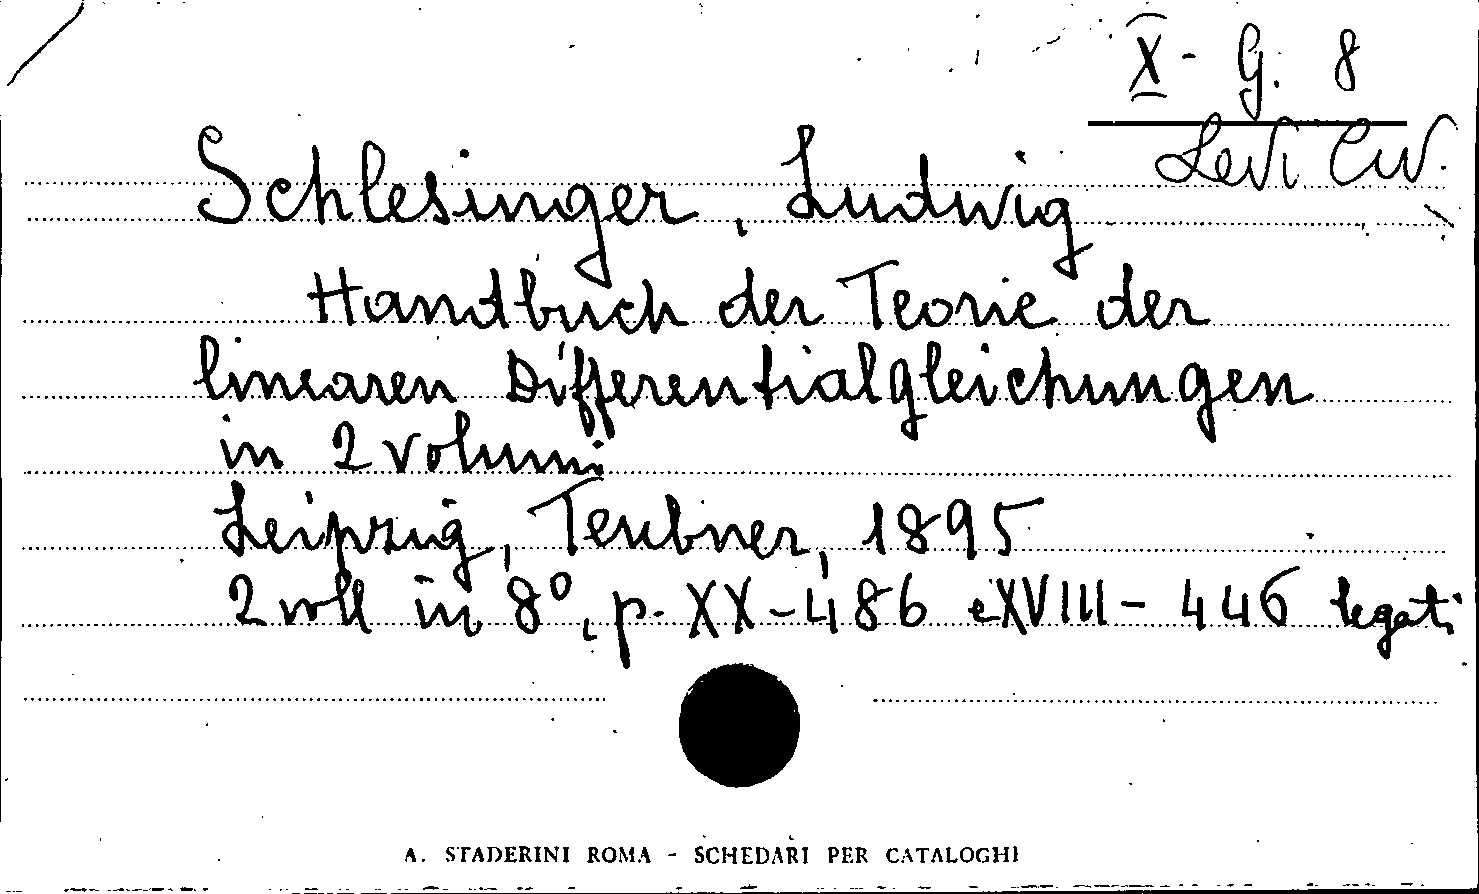 X - G. 8
Levi Civ.
Schlesinger, Ludwig
Handbuch der Teorie der
linearen Differentialgleichungen
in 2 volumi
Leipzig, Teubner, 1895
2 voll in 8°, p. XX-486 e XVIII-446 legati
A. STADERINI ROMA - SCHEDARI PER CATALOGHI